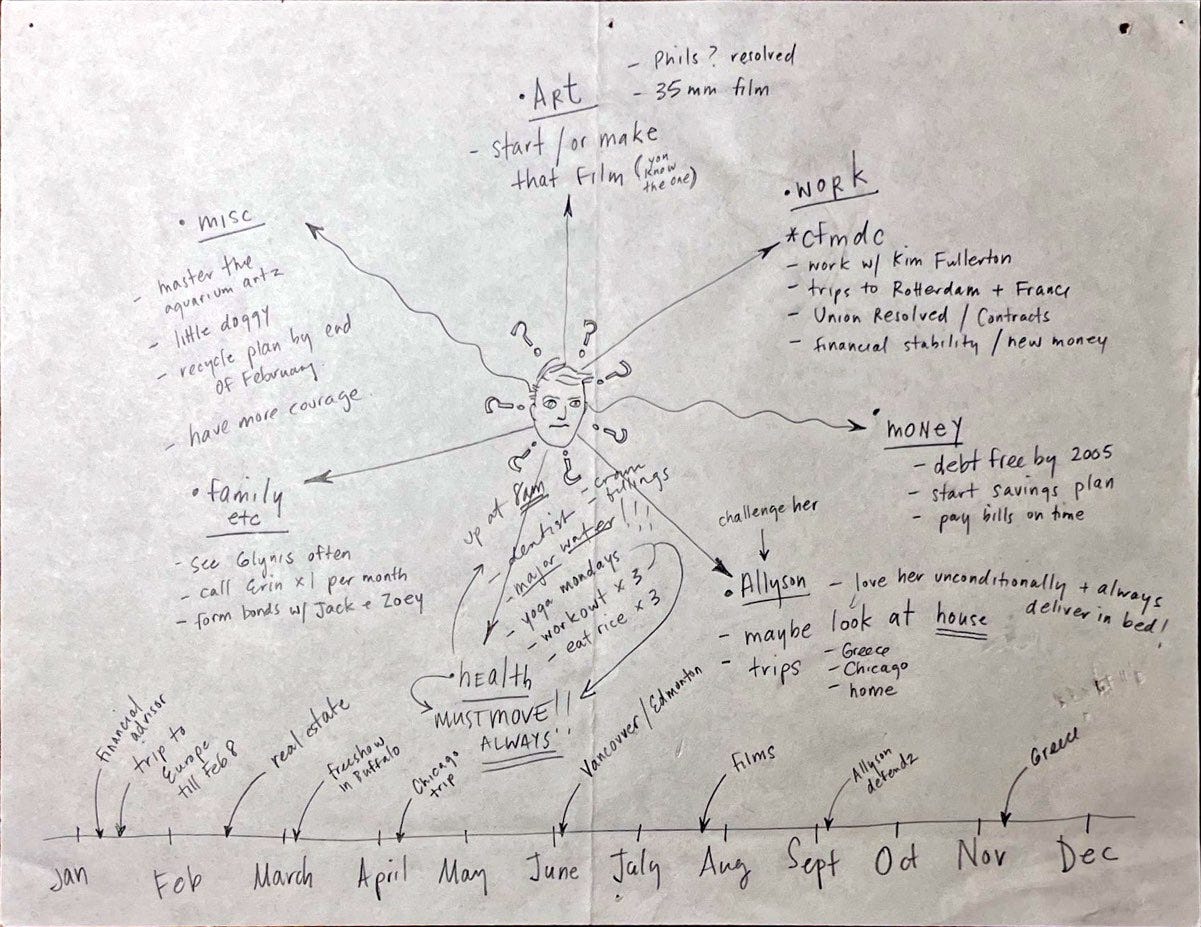 • Art
- Phils? resolved
- 35mm film
- start / or make
that Film (you
know
the one)
• work
*cfmdc
- work w/ Kim Fullerton
- trips to Rotterdam + France
- Union Resolved / Contracts
- financial stability / new money
• misc
- master the
aquarium artz
- little doggy
- recycle plan by end
of February.
- have more courage.
? ? ? ? ? ? ? ?
• money
- debt free by 2005
- start savings plan
- pay bills on time
• family
etc
- see Glynis often
- call Erin x1 per month
- form bonds w/ Jack + Zoey
up at 8am
- crown
- fillings
- dentist
- major water!!!
- yoga mondays
- workout x 3
- eat rice x 3
• health
MUST MOVE!!
ALWAYS!!
challenge her
• Allyson - love her unconditionally + always
deliver in bed!
- maybe look at house
- trips - Greece
- Chicago
- home
financial
advisor
trip to
Europe
till Feb 8
real estate
freeshow
in Buffalo
Chicago
trip
Vancouver/Edmonton
films
Allyson
defendz
Greece
Jan Feb March April May June July Aug Sept Oct Nov Dec